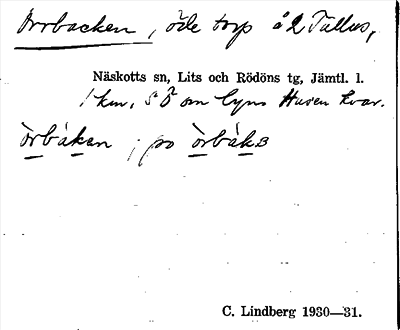 Orrbacken, öde torp å 2 Tullus,
Näskotts sn, Lits och Rödöns tg, Jämtl. l.
1 km, S Ö om byns Husen kvar.
òrbàkan ; po òrbàks
C. Lindberg 1930—31.